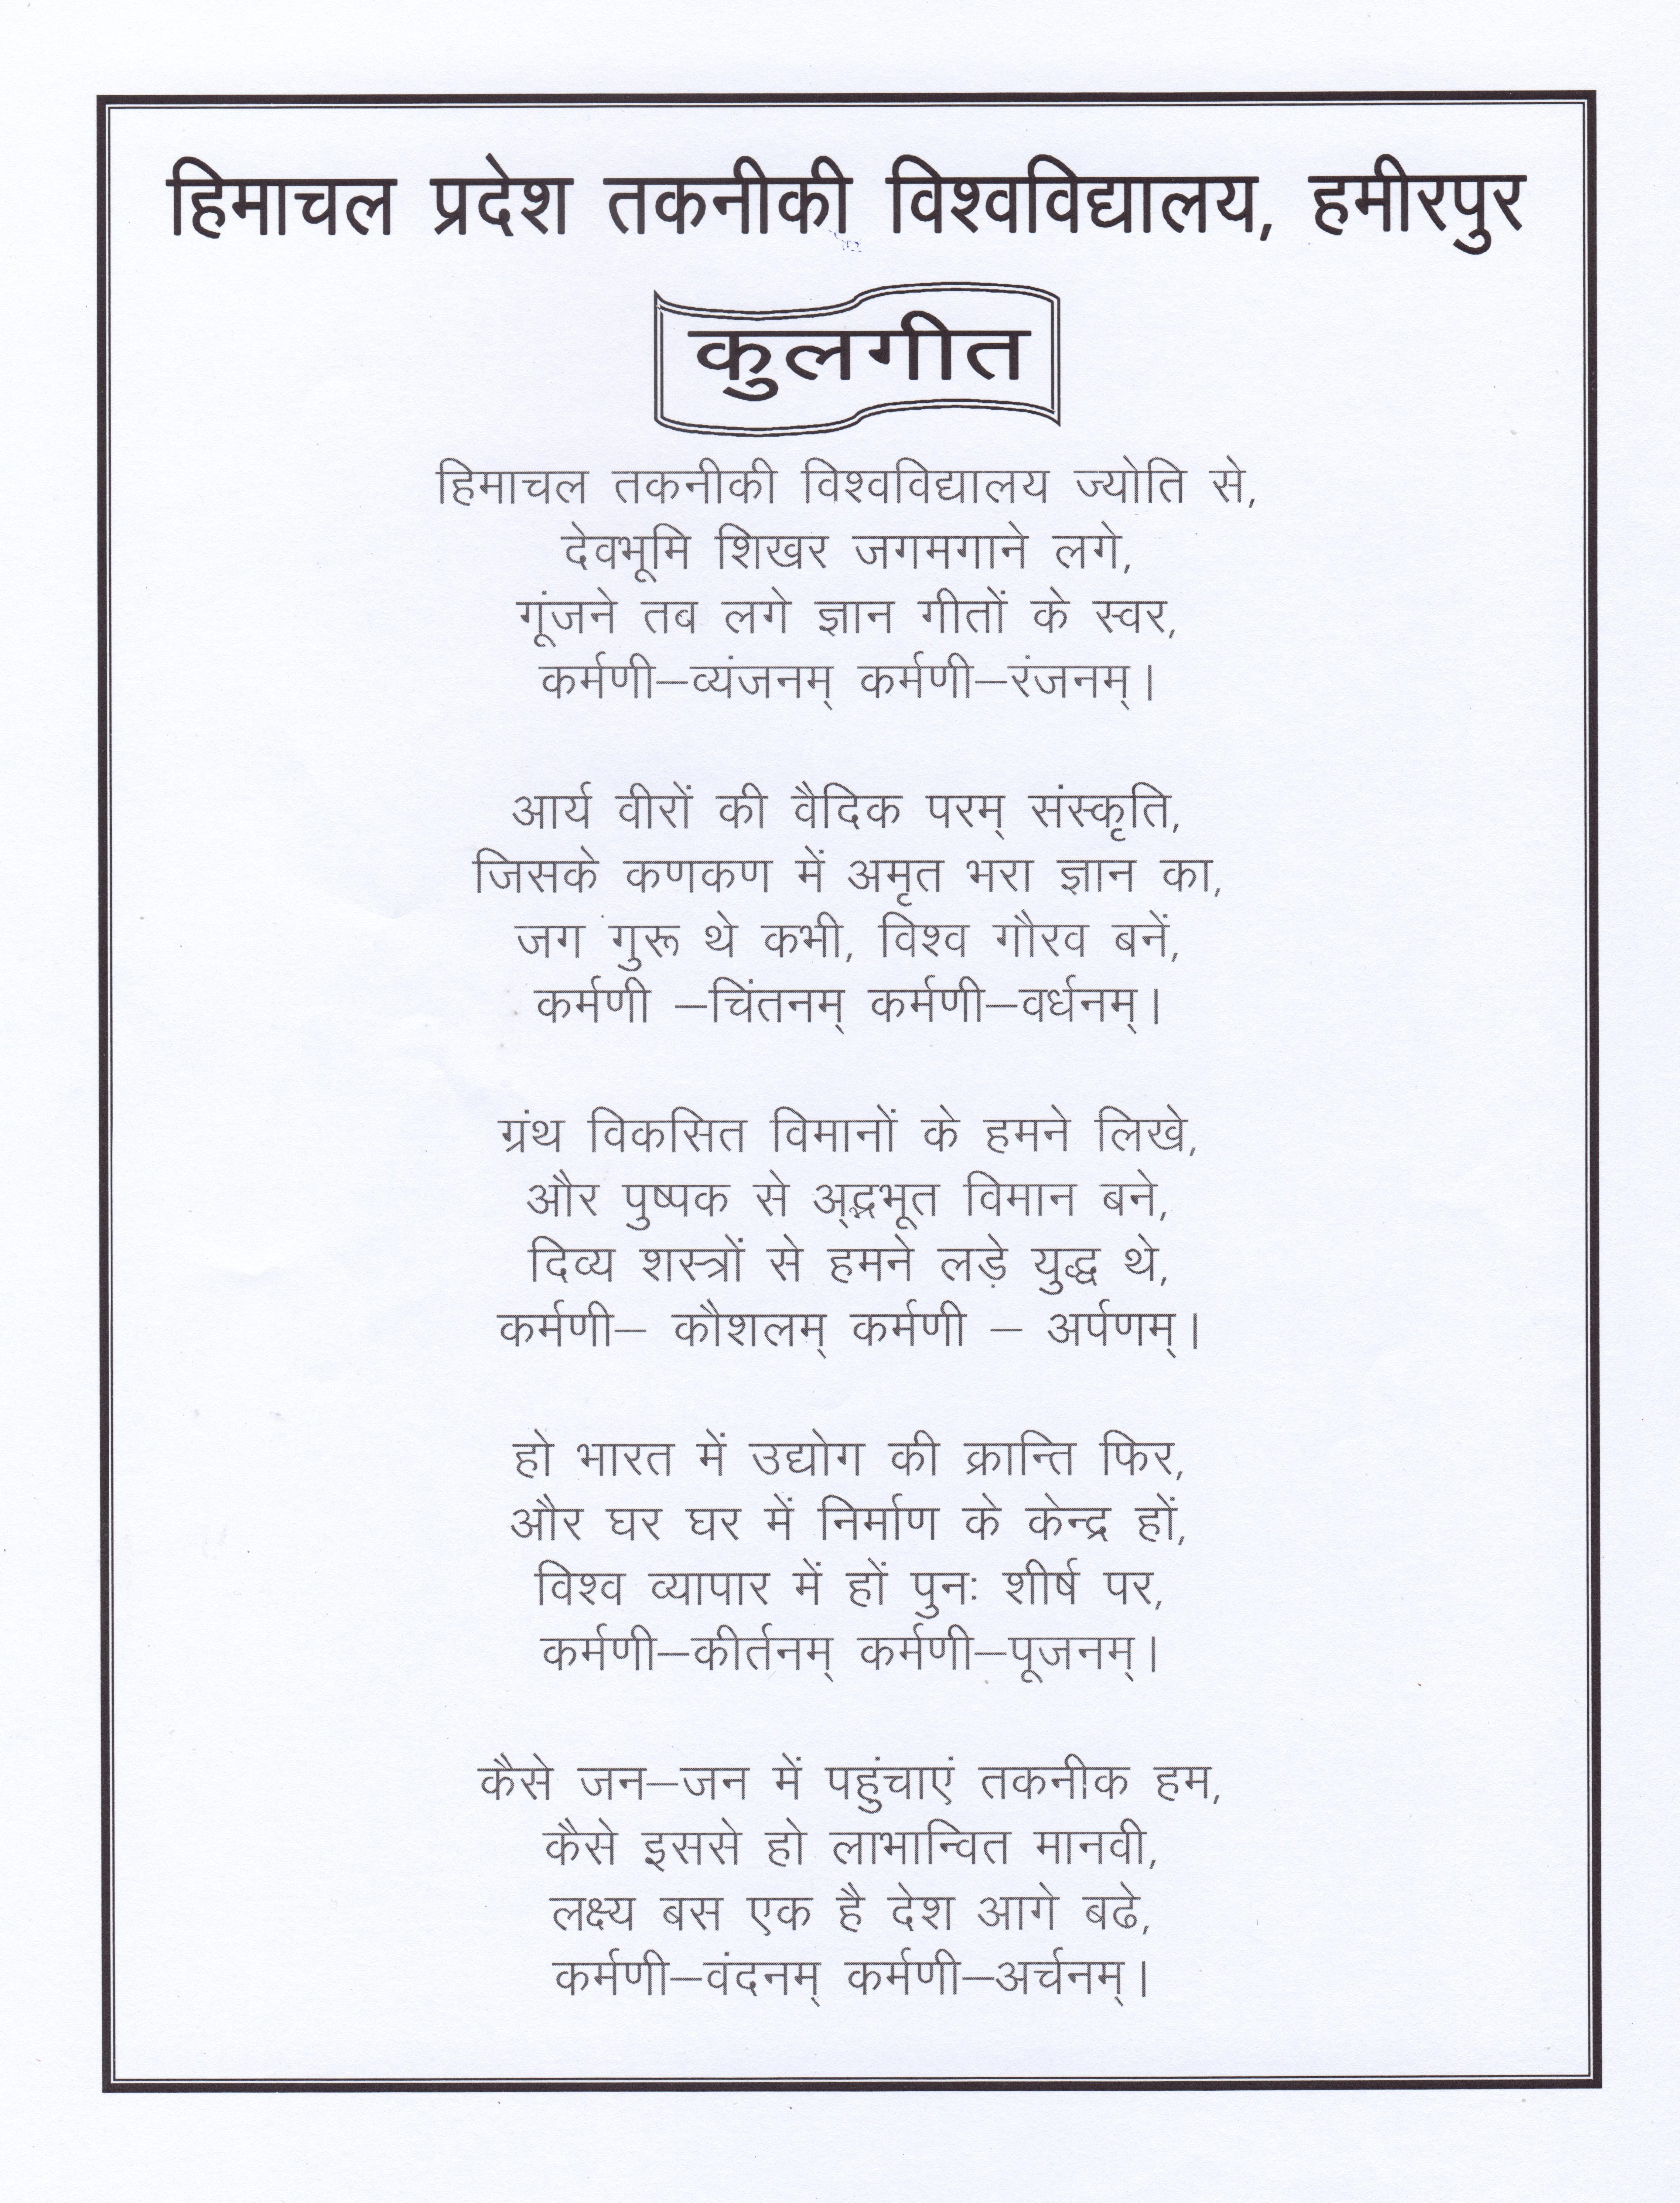 हिमाचल प्रदेश तकनीकी विश्वविद्यालय, हमीरपुर
कुलगीत
हिमाचल तकनीकी विश्वविद्यालय ज्योति से,
देवभूमि शिखर जगमगाने लगे,
गूंजने तब लगे ज्ञान गीतों के स्वर,
कर्मणी–व्यंजनम् कर्मणी–रंजनम्।
आर्य वीरों की वैदिक परम् संस्कृति,
जिसके कणकण में अमृत भरा ज्ञान का,
जग गुरू थे कभी, विश्व गौरव बनें,
कर्मणी –चिंतनम् कर्मणी–वर्धनम्।
ग्रंथ विकसित विमानों के हमने लिखे,
और पुष्पक से अ्द्भभूत विमान बने,
दिव्य शस्त्रों से हमने लड़े युद्ध थे,
कर्मणी– कौशलम् कर्मणी – अर्पणम्।
हो भारत में उद्योग की क्रान्ति फिर,
और घर घर में निर्माण के केन्द्र हों,
विश्व व्यापार में हों पुनः शीर्ष पर,
कर्मणी–कीर्तनम् कर्मणी–पूजनम्।
कैसे जन–जन में पहुंचाएं तकनीक हम,
कैसे इससे हो लाभान्वित मानवी,
लक्ष्य बस एक है देश आगे बढे,
कर्मणी–वंदनम् कर्मणी–अर्चनम्।